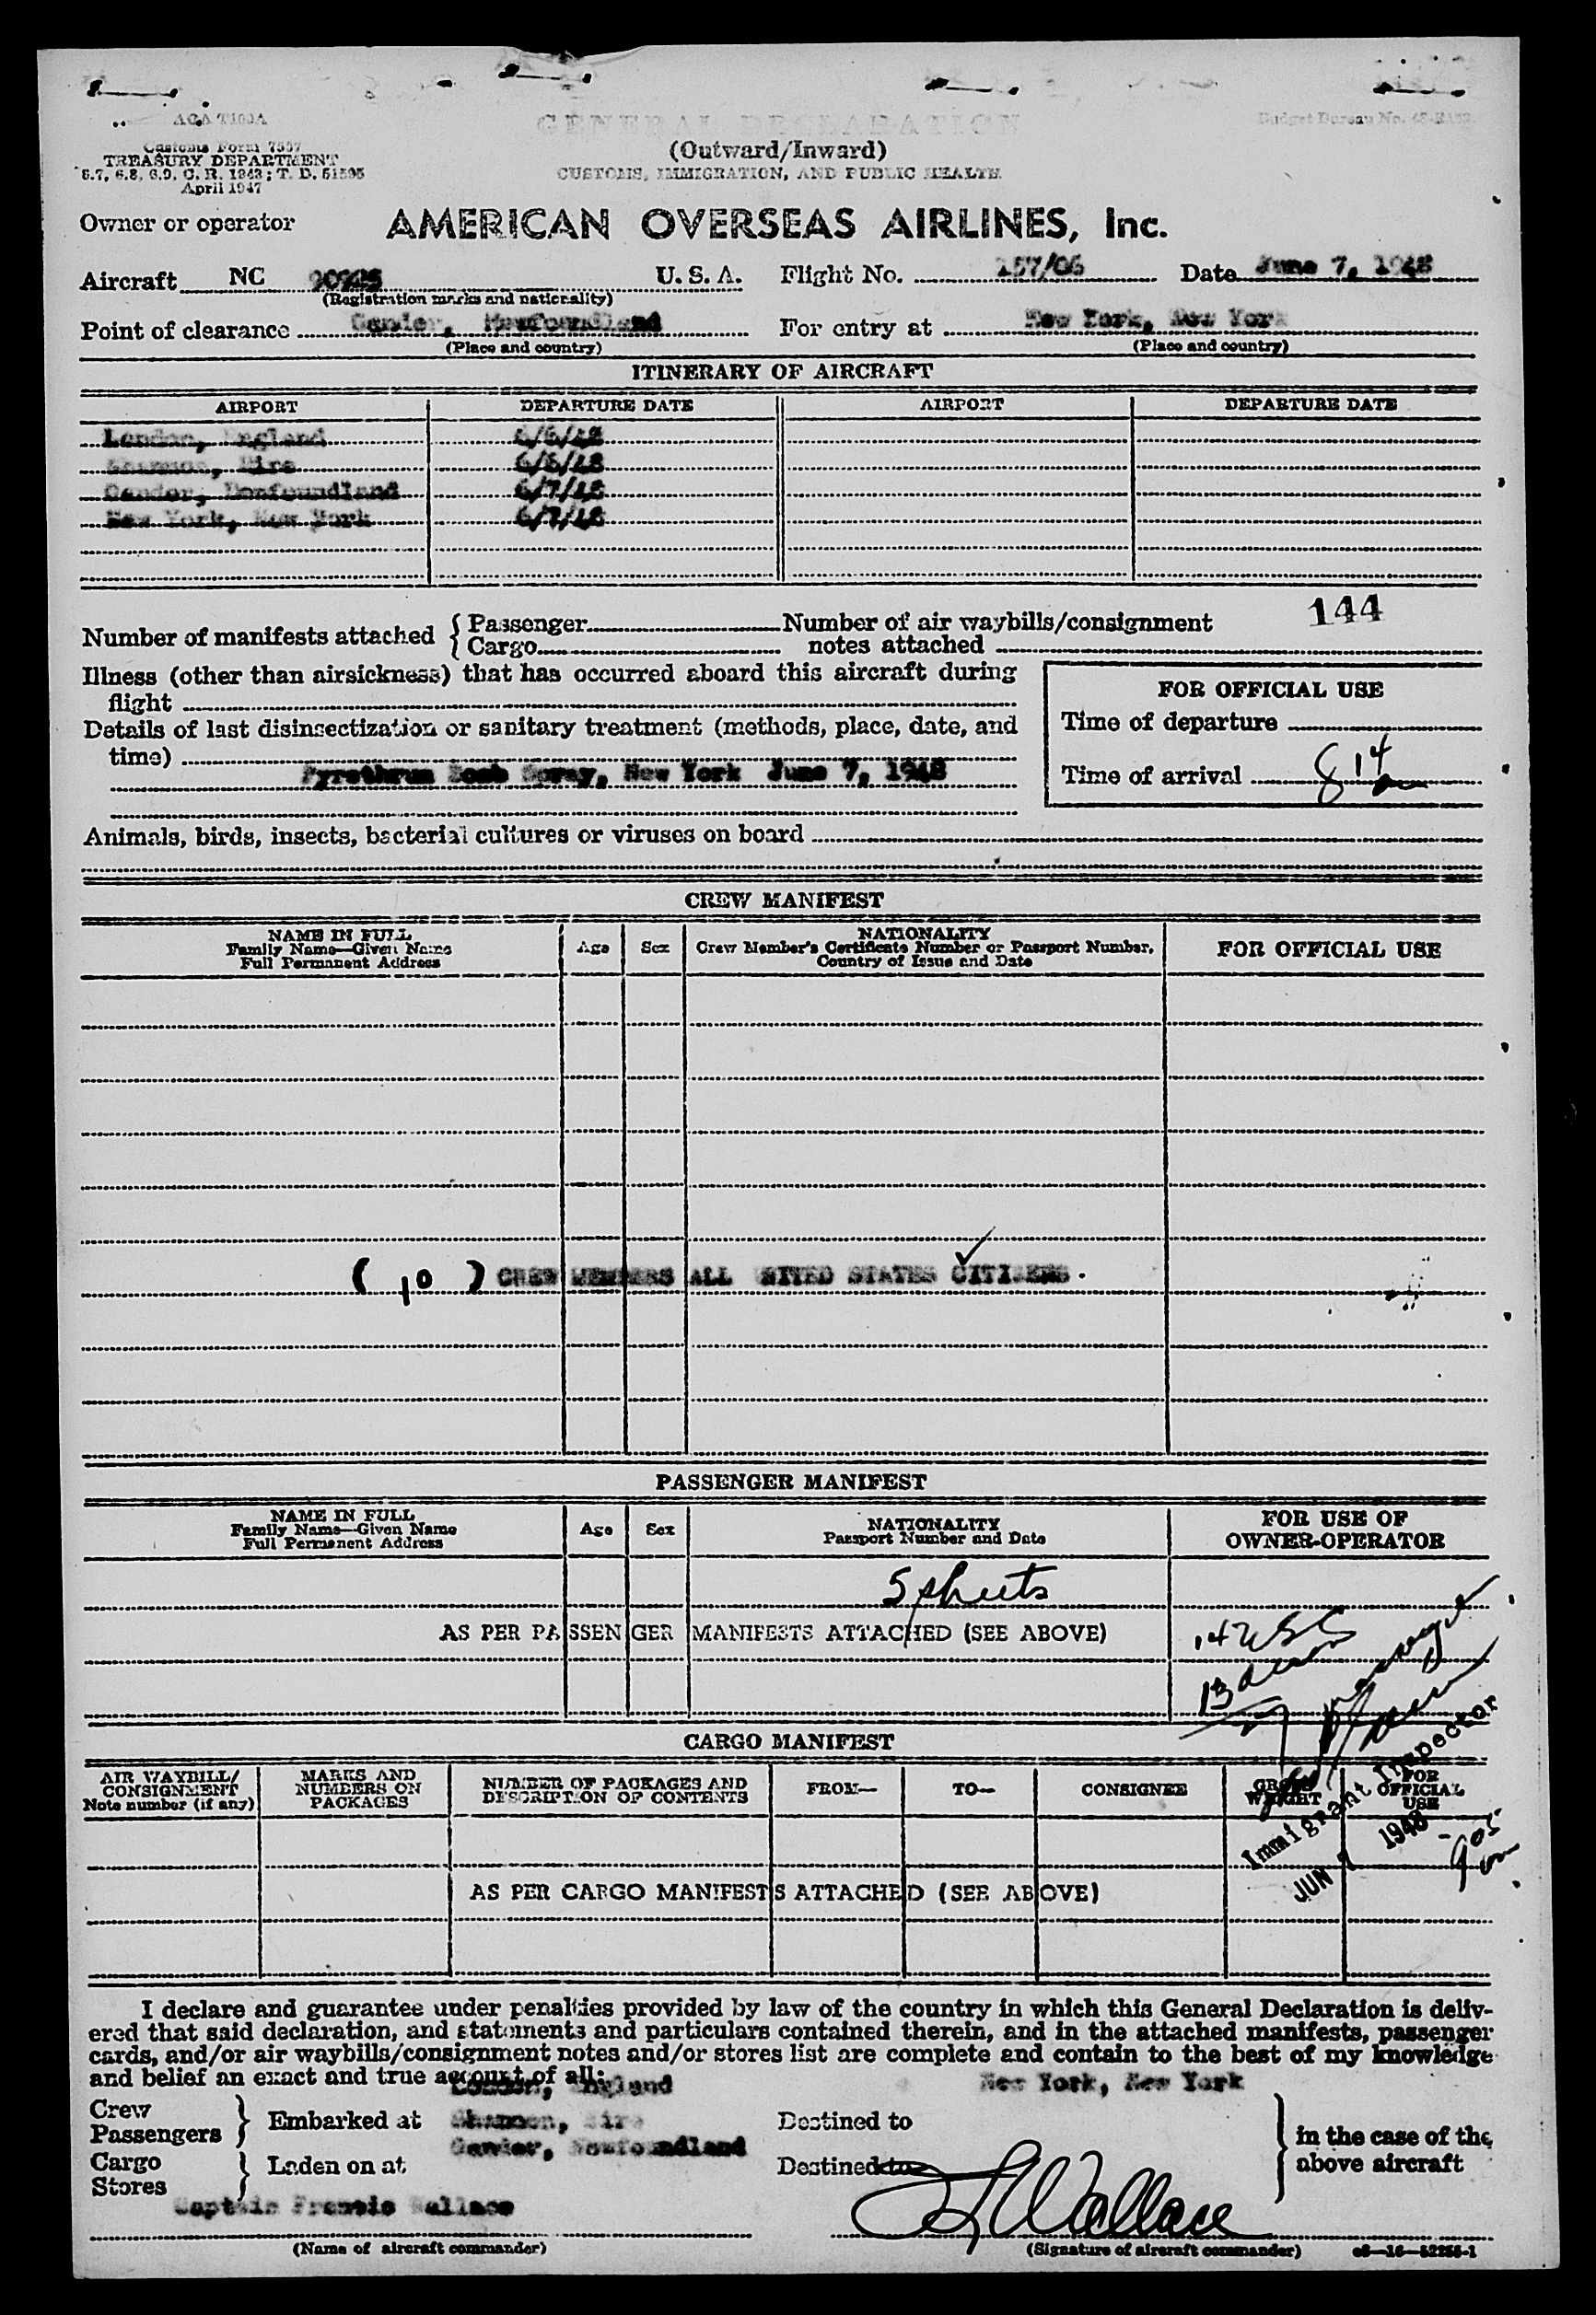 ACA T100A
GENERAL DECLARATION
Customs Form 7507
TREASURY DEPARTMENT
April 1947
(Outward/Inward)
CUSTOMS, IMMIGRATION, AND PUBLIC HEALTH
Owner or operator AMERICAN OVERSEAS AIRLINES, Inc.
Aircraft NC U. S. A. Flight No. 157/06 Date June 7, 1948
(Registration marks and nationality)
Point of clearance Gander, Newfoundland For entry at New York, New York
(Place and country) (Place and country)
ITINERARY OF AIRCRAFT
AIRPORT DEPARTURE DATE AIRPORT DEPARTURE DATE
London, England 6/6/48
Shannon, Eire 6/6/48
Gander, Newfoundland 6/7/48
New York, New York 6/7/48
144
Number of manifests attached { Passenger Number of air waybills/consignment
Cargo notes attached
Illness (other than airsickness) that has occurred aboard this aircraft during
flight
FOR OFFICIAL USE
Details of last disinsectization or sanitary treatment (methods, place, date, and
time)
Time of departure
Pyrethrum Bomb Spray, New York June 7, 1948
Time of arrival 8 14
Animals, birds, insects, bacterial cultures or viruses on board
CREW MANIFEST
NAME IN FULL
Family Name—Given Name
Full Permanent Address
Age Sex
NATIONALITY
Crew Member's Certificate Number or Passport Number,
Country of Issue and Date
FOR OFFICIAL USE
( 10 ) CREW MEMBERS ALL UNITED STATES CITIZENS.
PASSENGER MANIFEST
NAME IN FULL
Family Name—Given Name
Full Permanent Address
Age Sex
NATIONALITY
Passport Number and Date
FOR USE OF
OWNER-OPERATOR
5 sheets
AS PER PASSENGER MANIFESTS ATTACHED (SEE ABOVE)
14 USC
13
CARGO MANIFEST
AIR WAYBILL/
CONSIGNMENT
Note number (if any)
MARKS AND
NUMBERS ON
PACKAGES
NUMBER OF PACKAGES AND
DESCRIPTION OF CONTENTS
FROM—
TO—
CONSIGNEE
GROSS
WEIGHT
FOR
OFFICIAL
USE
Immigrant Inspector
JUN 7 1948
905
AS PER CARGO MANIFESTS ATTACHED (SEE ABOVE)
I declare and guarantee under penalties provided by law of the country in which this General Declaration is deliv-
ered that said declaration, and statements and particulars contained therein, and in the attached manifests, passenger
cards, and/or air waybills/consignment notes and/or stores list are complete and contain to the best of my knowledge
and belief an exact and true account of all:
London, England New York, New York
Crew
Passengers } Embarked at Shannon, Eire Destined to
Gander, Newfoundland
in the case of the
above aircraft
Cargo
Stores } Laden on at Destined to
Captain Francis Wallace F Wallace
(Name of aircraft commander) (Signature of aircraft commander)